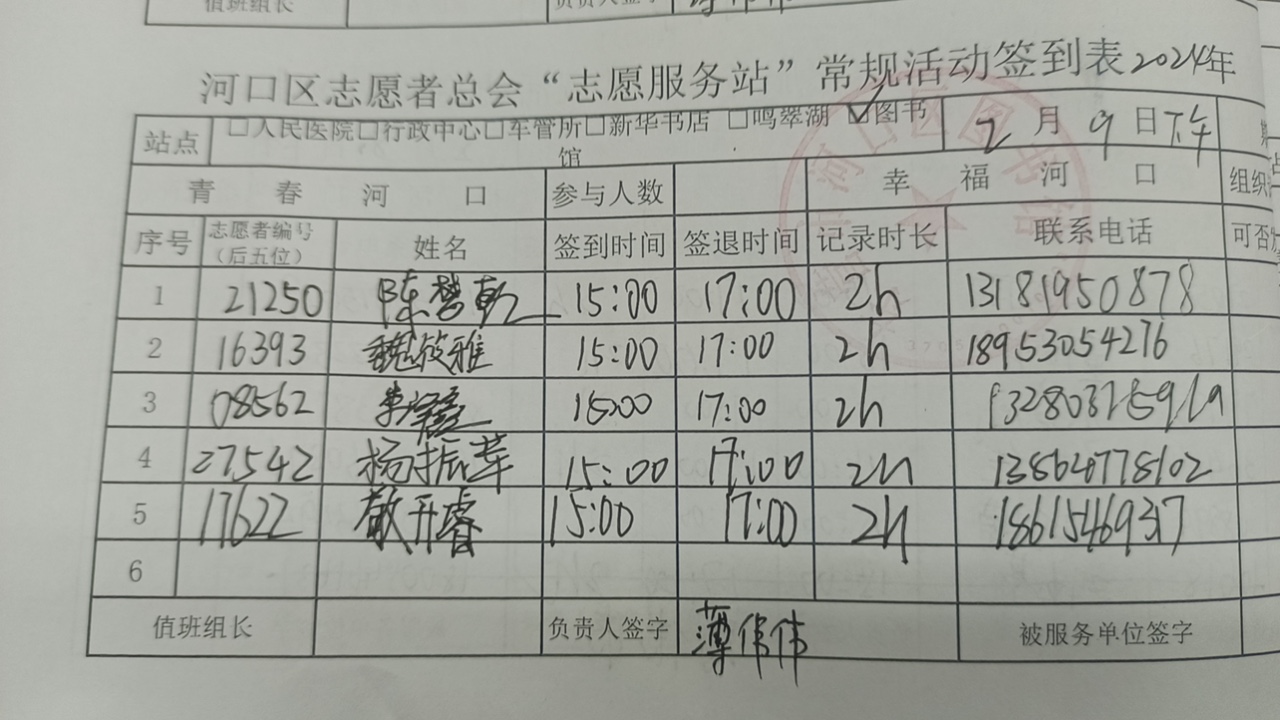 值班组长 负责人签字
河口区志愿者总会“志愿服务站”常规活动签到表2024年
站点 □人民医院□行政中心□车管所□新华书店 □鸣翠湖 ☑图书馆 2月9日下午
青春河口 参与人数 幸福河口 组织
序号 志愿者编号（后五位） 姓名 签到时间 签退时间 记录时长 联系电话 可否
1 21250 陈梦乾 15:00 17:00 2h 13181950878
2 16393 魏筱雅 15:00 17:00 2h 18953054276
3 08562 李 15:00 17:00 2h
4 27542 杨振苹 15:00 17:00 2h 13864778102
5 17622 敬开睿 15:00 17:00 2h 18615469317
6
值班组长 负责人签字 薄伟伟 被服务单位签字